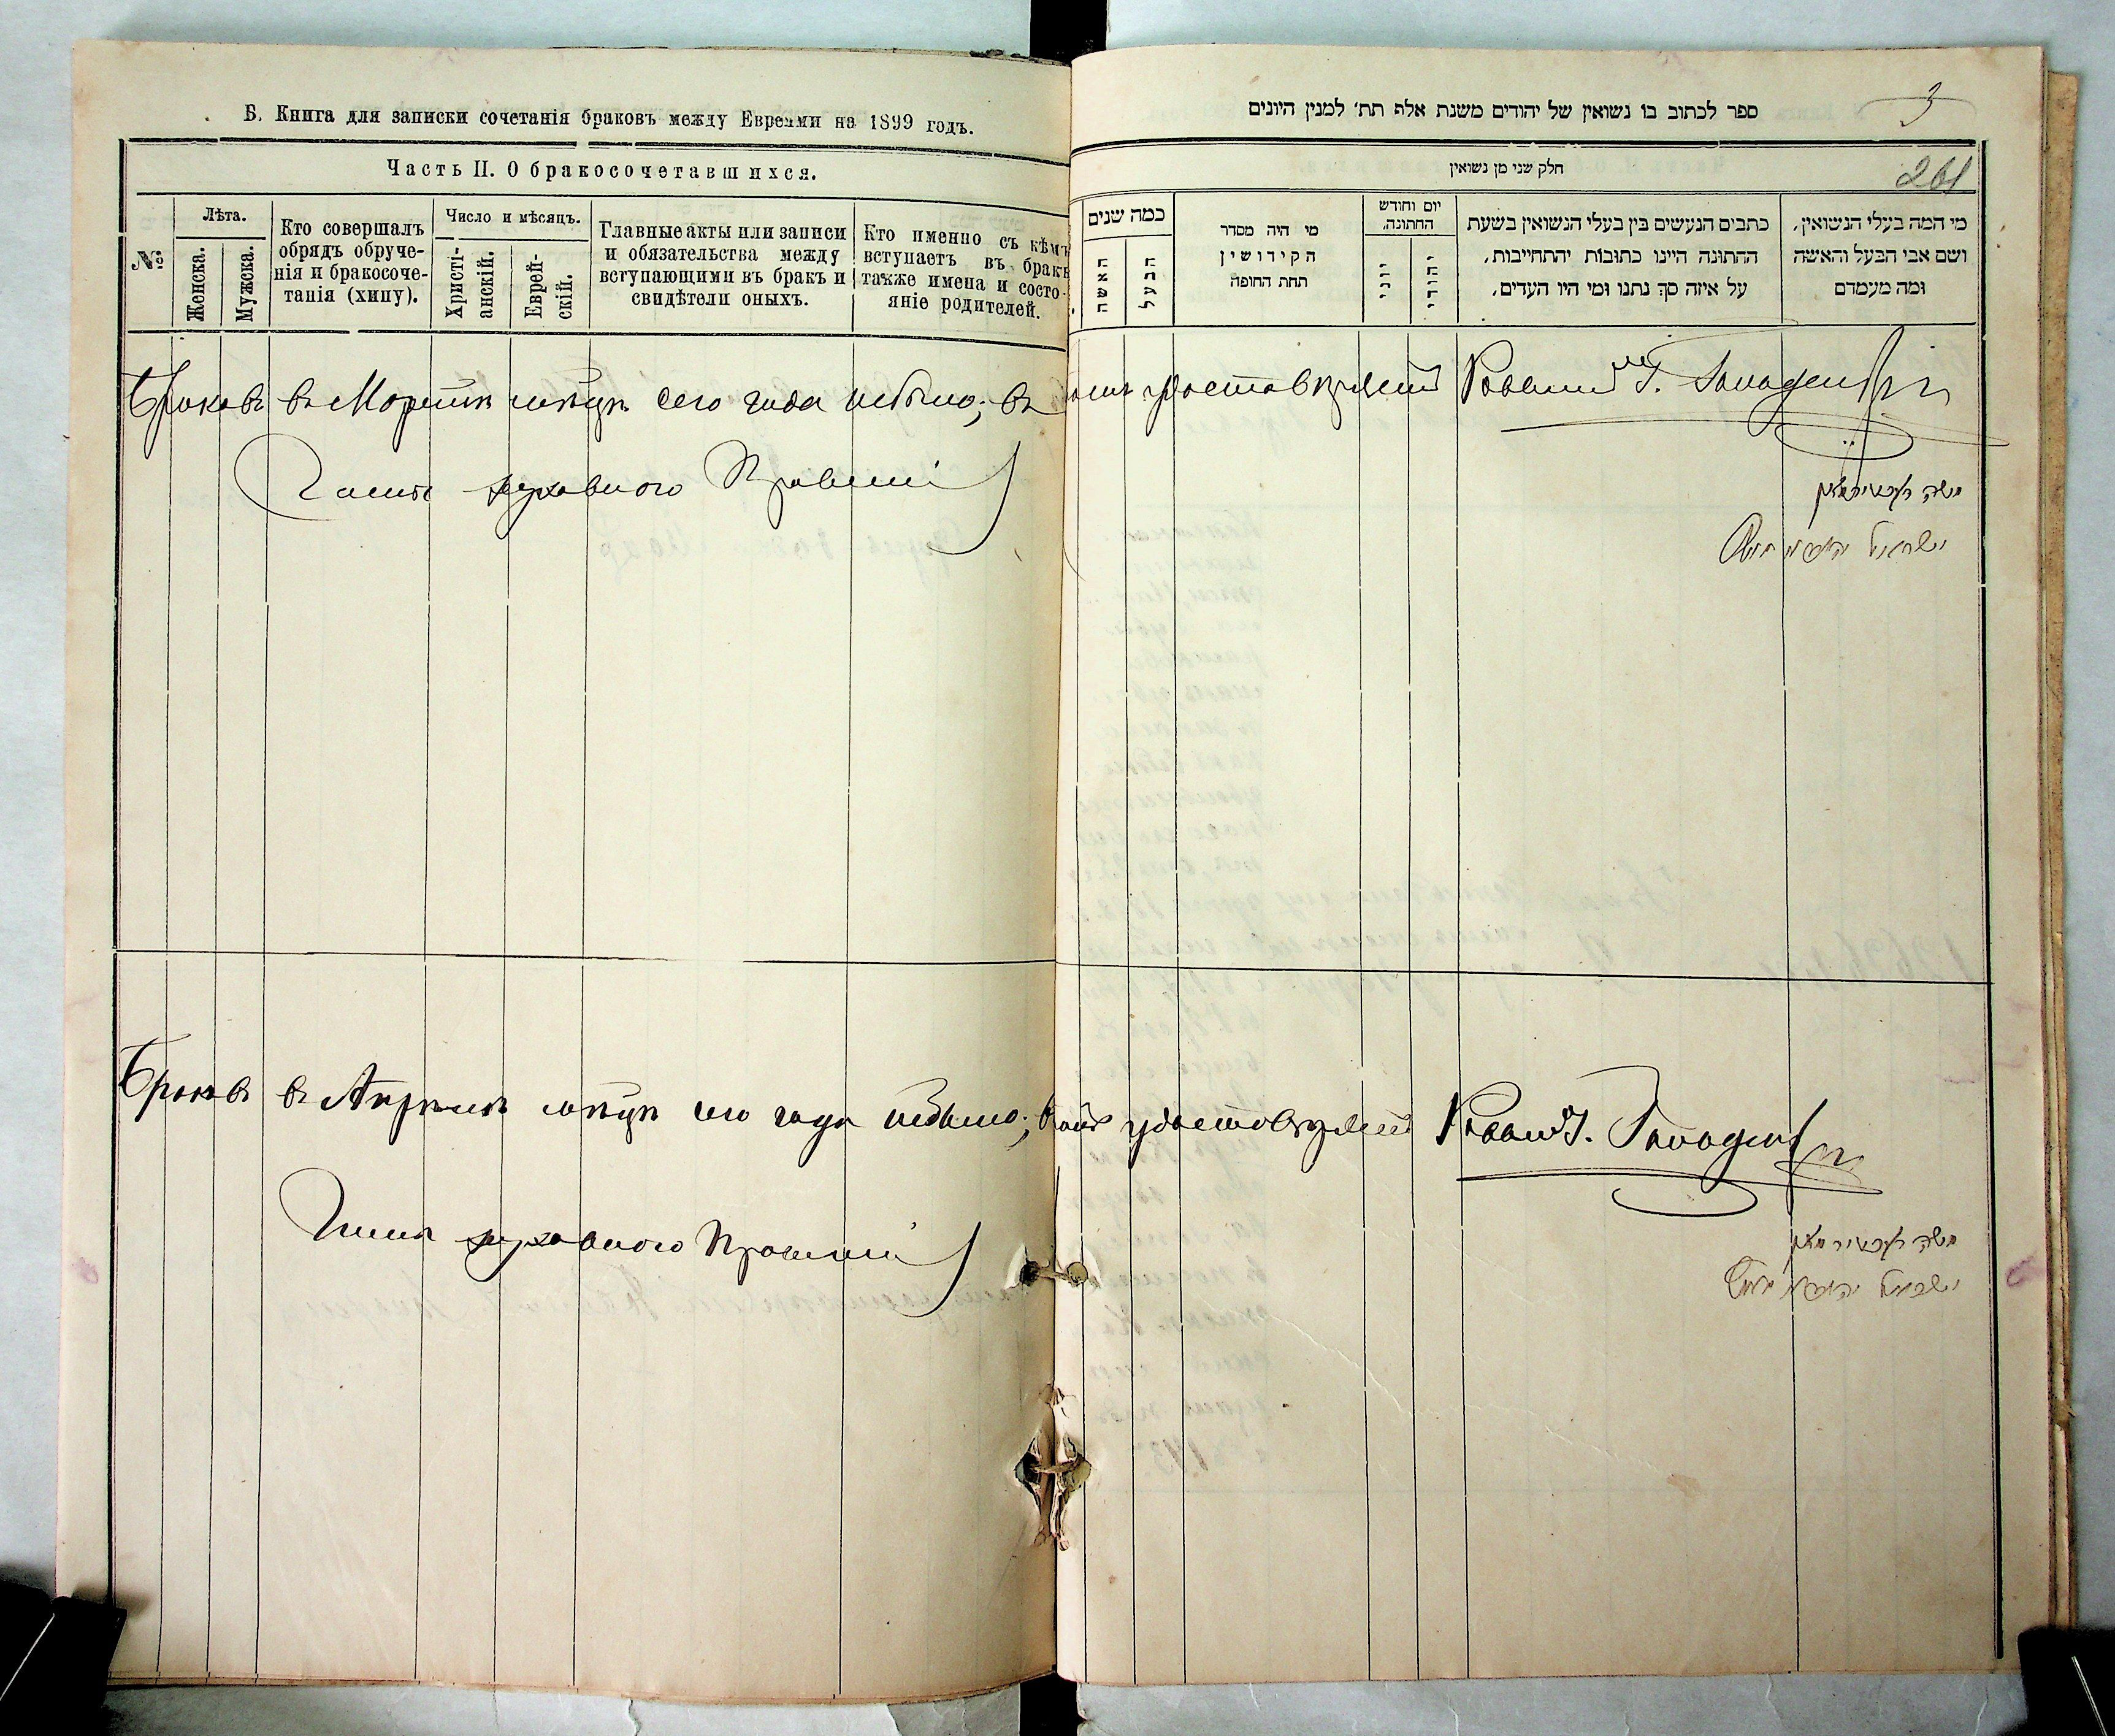 Б. Книга для записки сочетанія браковъ между Евреями на 1899 годъ.
Часть II. О бракосочетавшихся.
№
Лѣта.
Женска.
Мужска.
Кто совершалъ
обрядъ обруче-
нія и бракосоче-
танія (хипу).
Число и мѣсяцъ.
Христі-
анскій.
Еврей-
скій.
Главные акты или записи
и обязательства между
вступающими въ бракъ и
свидѣтели оныхъ.
Кто именно съ кѣмъ
вступаетъ въ бракъ
также имена и состо-
яніе родителей.
3
ספר לכתוב בו נשואין של יהודים משנת אלף תת׳ למנין היונים
261
חלק שני מן נשואין
כמה שנים
האשה
הבעל
מי היה מסדר
הקידושין
תחת החופה
יום וחודש
החתונה.
יוני
יהודי
כתבים הנעשים בין בעלי הנשואין בשעת
החתונה היינו כתובות יהתחייבות,
על איזה סך נתנו ומי היו העדים,
מי המה בעלי הנשואין,
ושם אבי הבעל והאשה
ומה מעמדם
Браковъ в Мартѣ мѣсяцѣ сего года небыло; в чемъ удостовѣряетъ Раввинъ Г.
Члены духовного Правленія
משה
ישראל
Браковъ в Апрѣлѣ мѣсяцѣ сего года небыло; в чемъ удостовѣряетъ Раввинъ Г.
Члены духовного Правленія
משה
ישראל